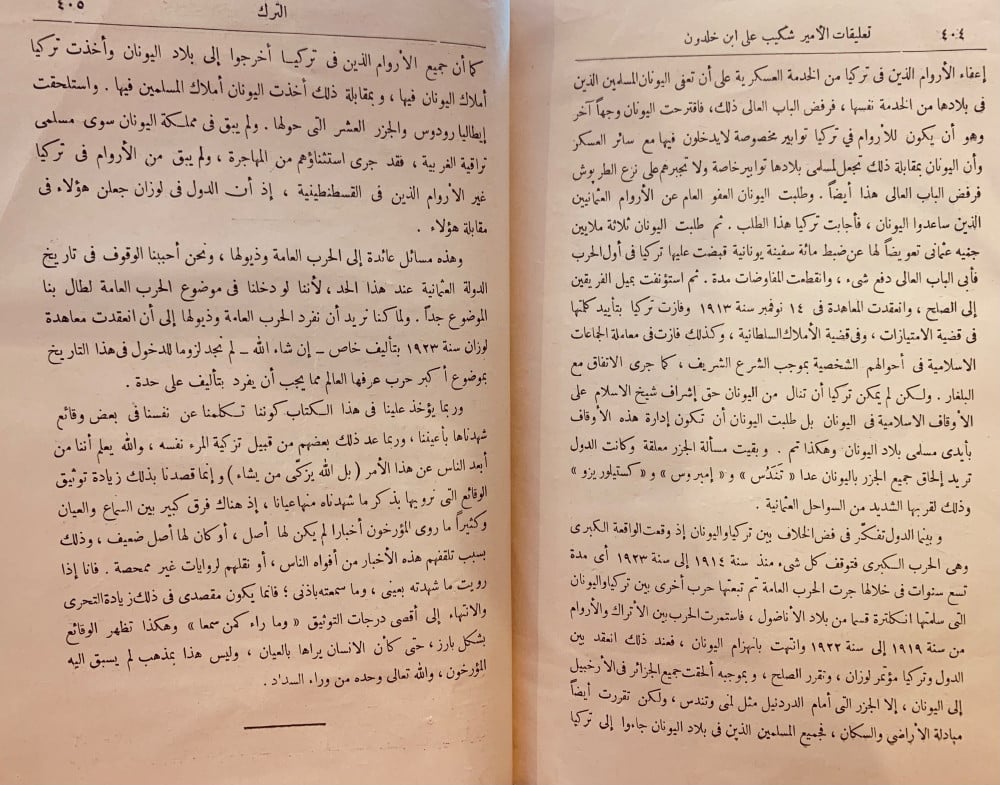 ٤٠٤
تعليقات الأمير شكيب على ابن خلدون
إعفاء الأروام الذين فى تركيا من الخدمة العسكرية على أن تعفى اليونان المسلمين الذين
فى بلادها من الخدمة نفسها ، فرفض الباب العالى ذلك، فاقترحت اليونان وجهاً آخر
وهو أن يكون للأروام في تركيا توابير مخصوصة لايدخلون فيها مع سائر العسكر
وأن اليونان بمقابلة ذلك تجعل لمسلمى بلادها توابير خاصة ولا تجبرهم على نزع الطربوش
فرفض الباب العالى هذا أيضاً . وطلبت اليونان العفو العام عن الأروام العثمانيين
الذين ساعدوا اليونان ، فأجابت تركيا هذا الطلب . ثم طلبت اليونان ثلاثة ملايين
جنيه عثمانى تعويضاً لها عن ضبط مائة سفينة يونانية قبضت عليها تركيا فى أول الحرب
فأبى الباب العالى دفع شىء ، وانقطعت المفاوضات مدة . ثم استؤنفت بميل الفريقين
إلى الصلح ، وانعقدت المعاهدة فى ١٤ نوفمبر سنة ١٩١٣ وفازت تركيا بتأييد كلمتها
فى قضية الامتيازات ، وفى قضية الأملاك السلطانية ، وكذلك فازت فى معاملة الجماعات
الاسلامية فى أحوالهم الشخصية بموجب الشرع الشريف ، كما جرى الاتفاق مع
البلغار . ولكن لم يمكن تركيا أن تنال من اليونان حق إشراف شيخ الاسلام على
الأوقاف الاسلامية فى اليونان بل طلبت اليونان أن تكون إدارة هذه الأوقاف
بأيدى مسلمى بلاد اليونان وهكذا تم . وبقيت مسألة الجزر معلقة وكانت الدول
تريد إلحاق جميع الجزر باليونان عدا « تَنَدُس » و« إمبروس » و« كستيلوريزو »
وذلك لقربها الشديد من السواحل العثمانية .
و بينما الدول تفكّر فى فض الخلاف بين تركيا واليونان إذ وقعت الواقعة الكبرى
وهى الحرب الكبرى فتوقف كل شىء منذ سنة ١٩١٤ إلى سنة ١٩٢٣ أى مدة
تسع سنوات فى خلالها جرت الحرب العامة ثم تبعتها حرب أخرى بين تركيا واليونان
التى سلمتها انكلترة قسما من بلاد الأناضول ، فاستمرت الحرب بين الأتراك والأروام
من سنة ١٩١٩ إلى سنة ١٩٢٢ وانتهت بانهزام اليونان ، فعند ذلك انعقد بين
الدول وتركيا مؤتمر لوزان ، وتقرر الصلح ، و بموجبه ألحقت جميع الجزائر فى الأرخبيل
إلى اليونان ، إلا الجزر التى أمام الدردنيل مثل لمنى وتندس ، ولكن تقررت أيضاً
مبادلة الأراضي والسكان ، فجميع المسلمين الذين فى بلاد اليونان جاءوا إلى تركيا
الترك
٤٠٥
كما أن جميع الأروام الذين فى تركيا أخرجوا إلى بلاد اليونان وأخذت تركيا
أملاك اليونان فيها ، و بمقابلة ذلك أخذت اليونان أملاك المسلمين فيها . واستلحقت
إيطاليا رودوس والجزر العشر التى حولها . ولم يبق فى مملكة اليونان سوى مسلمى
تراقية الغربية ، فقد جرى استثناؤهم من المهاجرة ، ولم يبق من الأروام فى تركيا
غير الأروام الذين فى القسطنطينية ، إذ أن الدول فى لوزان جعلن هؤلاء فى
مقابلة هؤلاء .
وهذه مسائل عائدة إلى الحرب العامة وذيولها ، ونحن أحببنا الوقوف فى تاريخ
الدولة العثمانية عند هذا الحد ، لأننا لو دخلنا فى موضوع الحرب العامة لطال بنا
الموضوع جداً . ولما كنا نريد أن نفرد الحرب العامة وذيولها إلى أن انعقدت معاهدة
لوزان سنة ١٩٢٣ بتأليف خاص – إن شاء الله – لم نجد لزوما للدخول فى هذا التاريخ
بموضوع أكبر حرب عرفها العالم مما يجب أن يفرد بتأليف على حدة .
وربما يؤخذ علينا فى هذا الكتاب كوننا تكلمنا عن نفسنا فى بعض وقائع
شهدناها بأعيننا ، وربما عد ذلك بعضهم من قبيل تزكية المرء نفسه ، والله يعلم أننا من
أبعد الناس عن هذا الأمر ( بل الله يزكّى من يشاء ) و إنما قصدنا بذلك زيادة توثيق
الوقائع التى نرويها بذكر ما شهدناه منها عيانا ، إذ هناك فرق كبير بين السماع والعيان
وكثيراً ما روى المؤرخون أخبارا لم يكن لها أصل ، أو كان لها أصل ضعيف ، وذلك
بسبب تلقفهم هذه الأخبار من أفواه الناس ، أو نقلهم لروايات غير ممحصة . فانا إذا
رويت ما شهدته بعينى ، وما سمعته باذنى ؛ فانما يكون مقصدى فى ذلك زيادة التحرى
والانتهاء إلى أقصى درجات التوثيق « وما راء كمن سمعا » وهكذا تظهر الوقائع
بشكل بارز ، حتى كأن الانسان يراها بالعيان ، وليس هذا بمذهب لم يسبق اليه
المؤرخون ، والله تعالى وحده من وراء السداد .